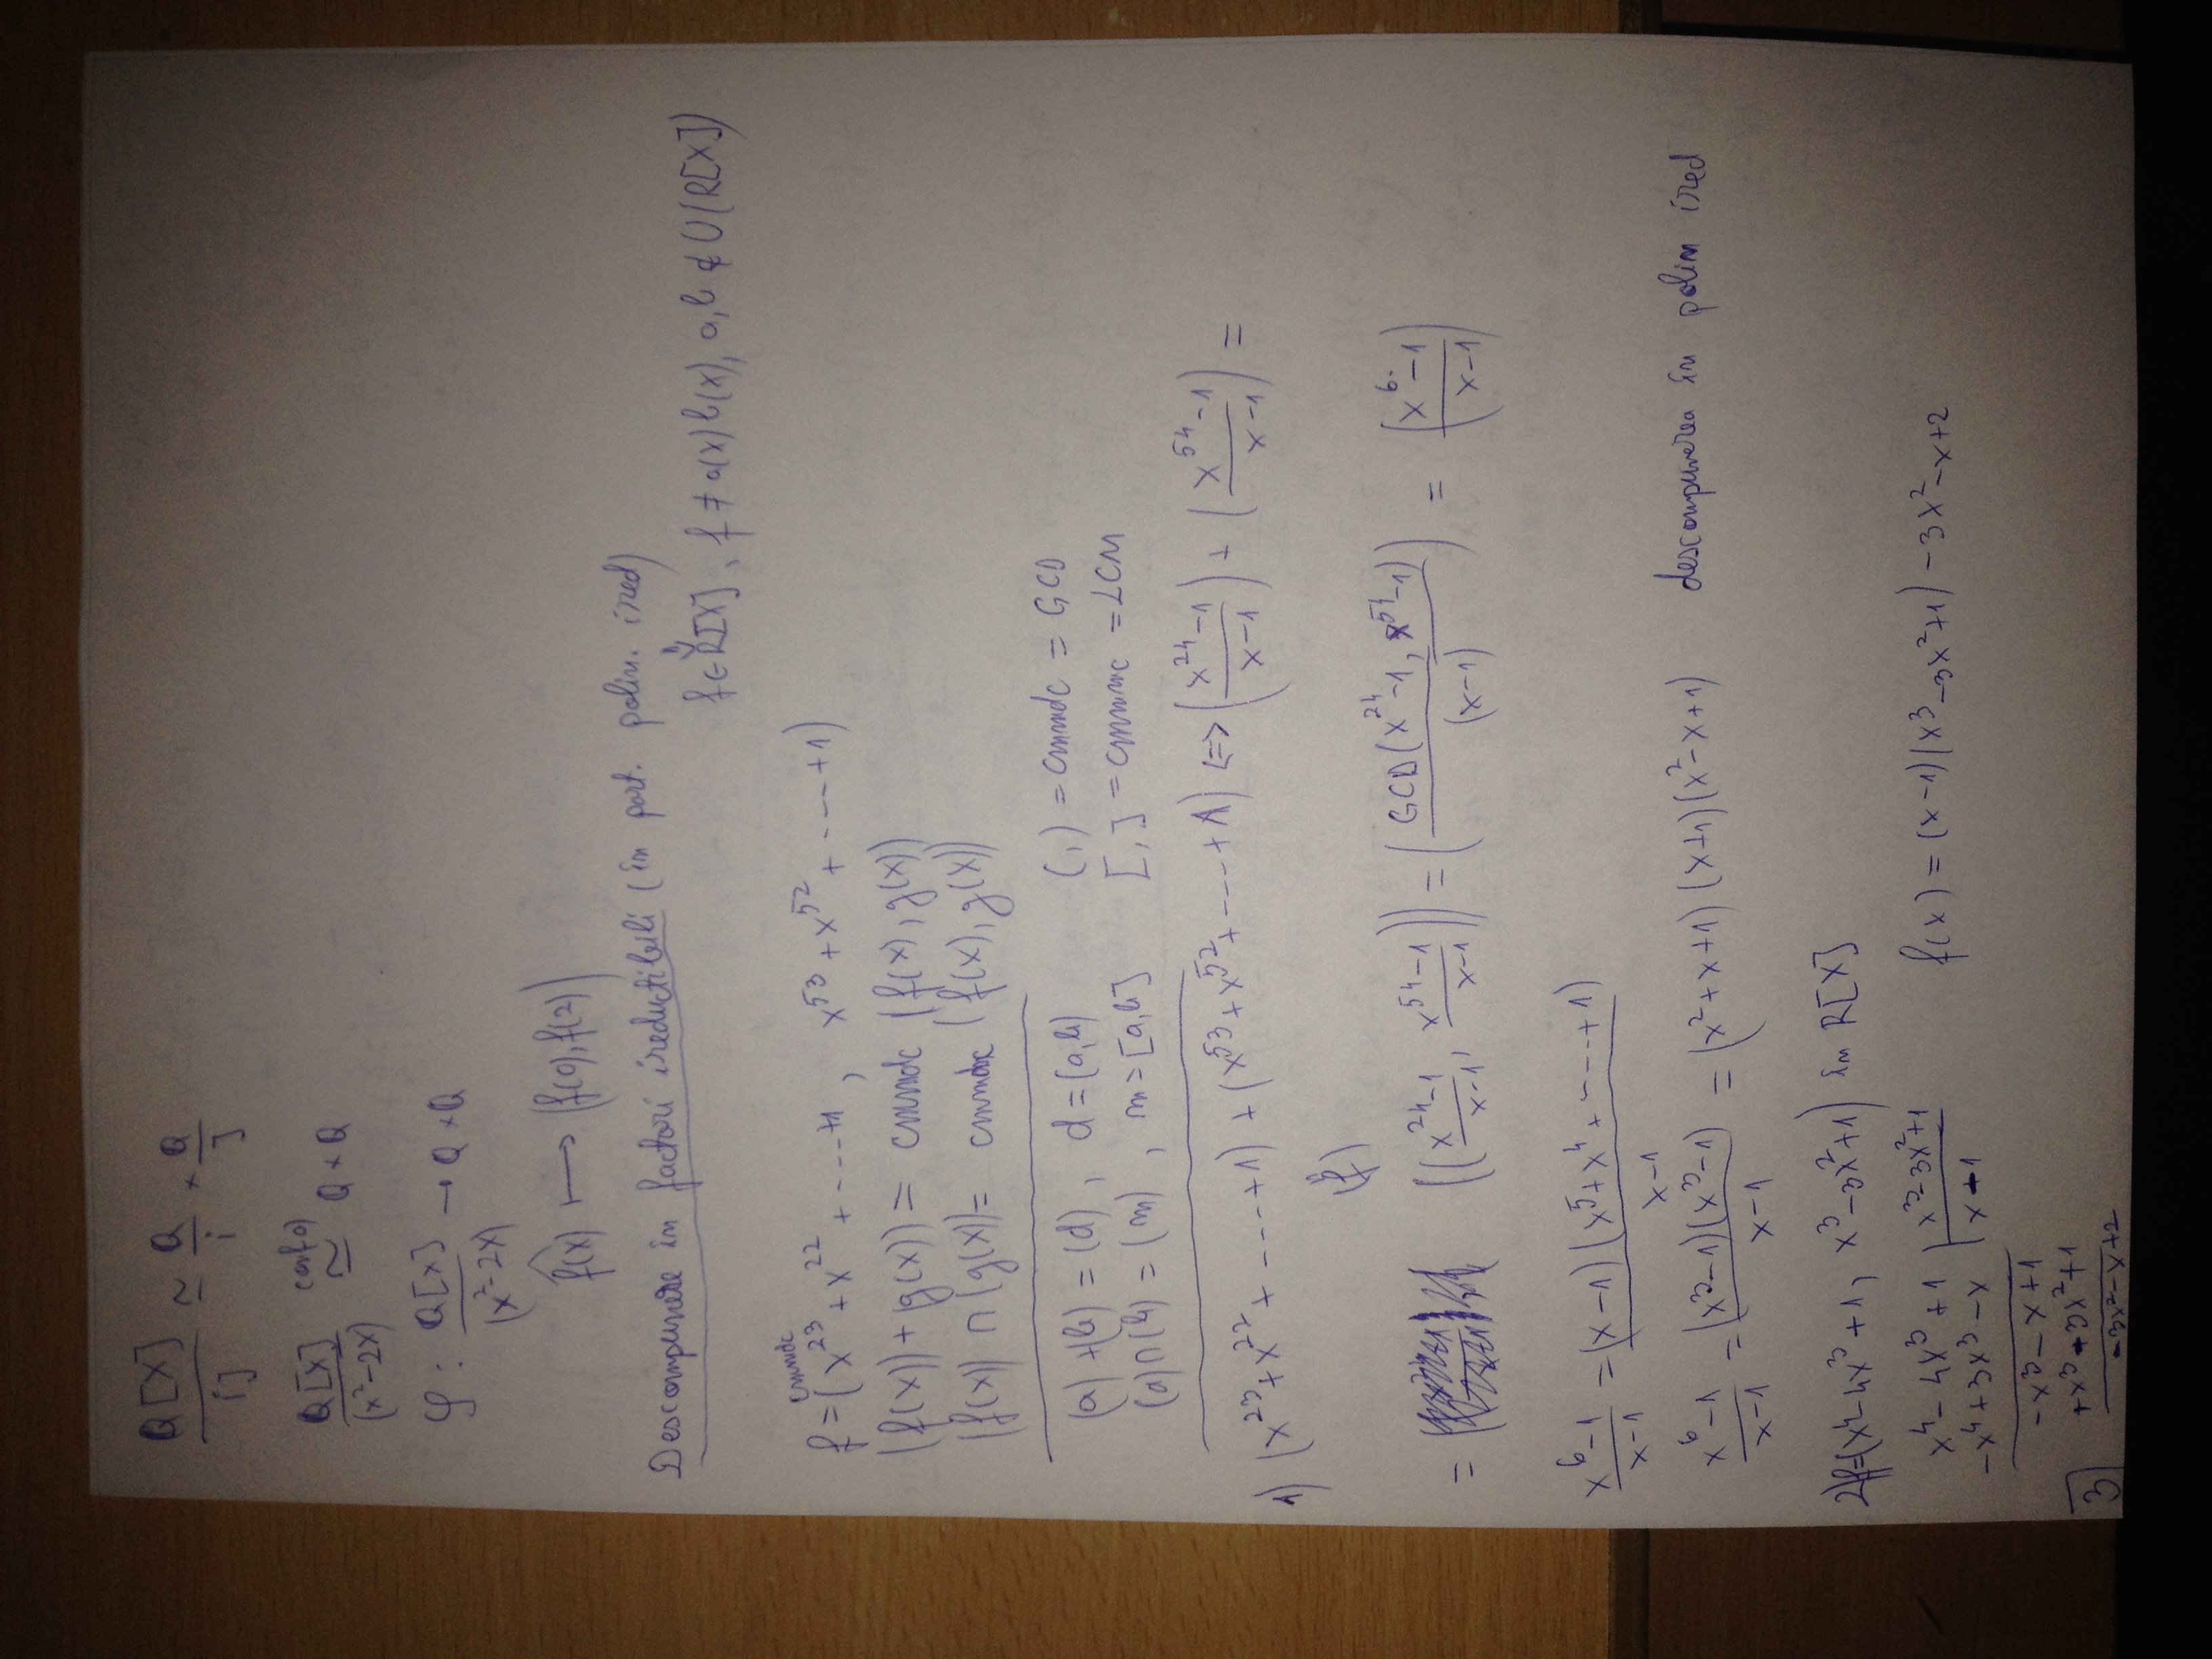 Q[X]/IJ ≃ Q/I × Q/J
Q[X]/(x²-2x) ≃ Q × Q
φ : Q[X]/(x²-2x) → Q × Q
f(x) ⟼ (f(0), f(2))
Descompunere în factori ireductibili (în part. polin. ired)
f ∈ R[X], f ≠ a(x) b(x), a, b ∉ U(R[X])
cmmdc
f = (x²³ + x²² + ---- +1 , x⁵³ + x⁵² + ---- +1)
(f(x)) + (g(x)) = cmmdc (f(x), g(x))
(f(x)) ∩ (g(x)) = (f(x), g(x))
(a) + (b) = (d) , d = (a, b) (,) = cmmdc = GCD
(a) ∩ (b) = (m) , m = [a, b] [,] = cmmmc = LCM
1) (x²³ + x²² + ---- +1) + (x⁵³ + x⁵² + ---- +1) <=> ((x²⁴-1)/(x-1)) + ((x⁵⁴-1)/(x-1)) =
(f)
= (((x²⁴-1)/(x-1), (x⁵⁴-1)/(x-1))) = (GCD(x²⁴-1, x⁵⁴-1)/(x-1)) = ((x⁶-1)/(x-1))
(x⁶-1)/(x-1) = (x-1)(x⁵+x⁴+ ---- +1)/(x-1)
(x⁶-1)/(x-1) = (x³-1)(x³-1)/(x-1) = (x²+x+1)(x+1)(x²-x+1) descompunerea în polin ired
2) f=(x⁴-4x³+1, x³-3x²+1) în R[X]
x⁴-4x³+1 | x³-3x²+1
-x⁴+3x³-x | x-1
f(x) = (x-1)(x³-3x²+1) -3x²-x+2
-x³-x+1
+x³-3x²+1
-3x²-x+2
3